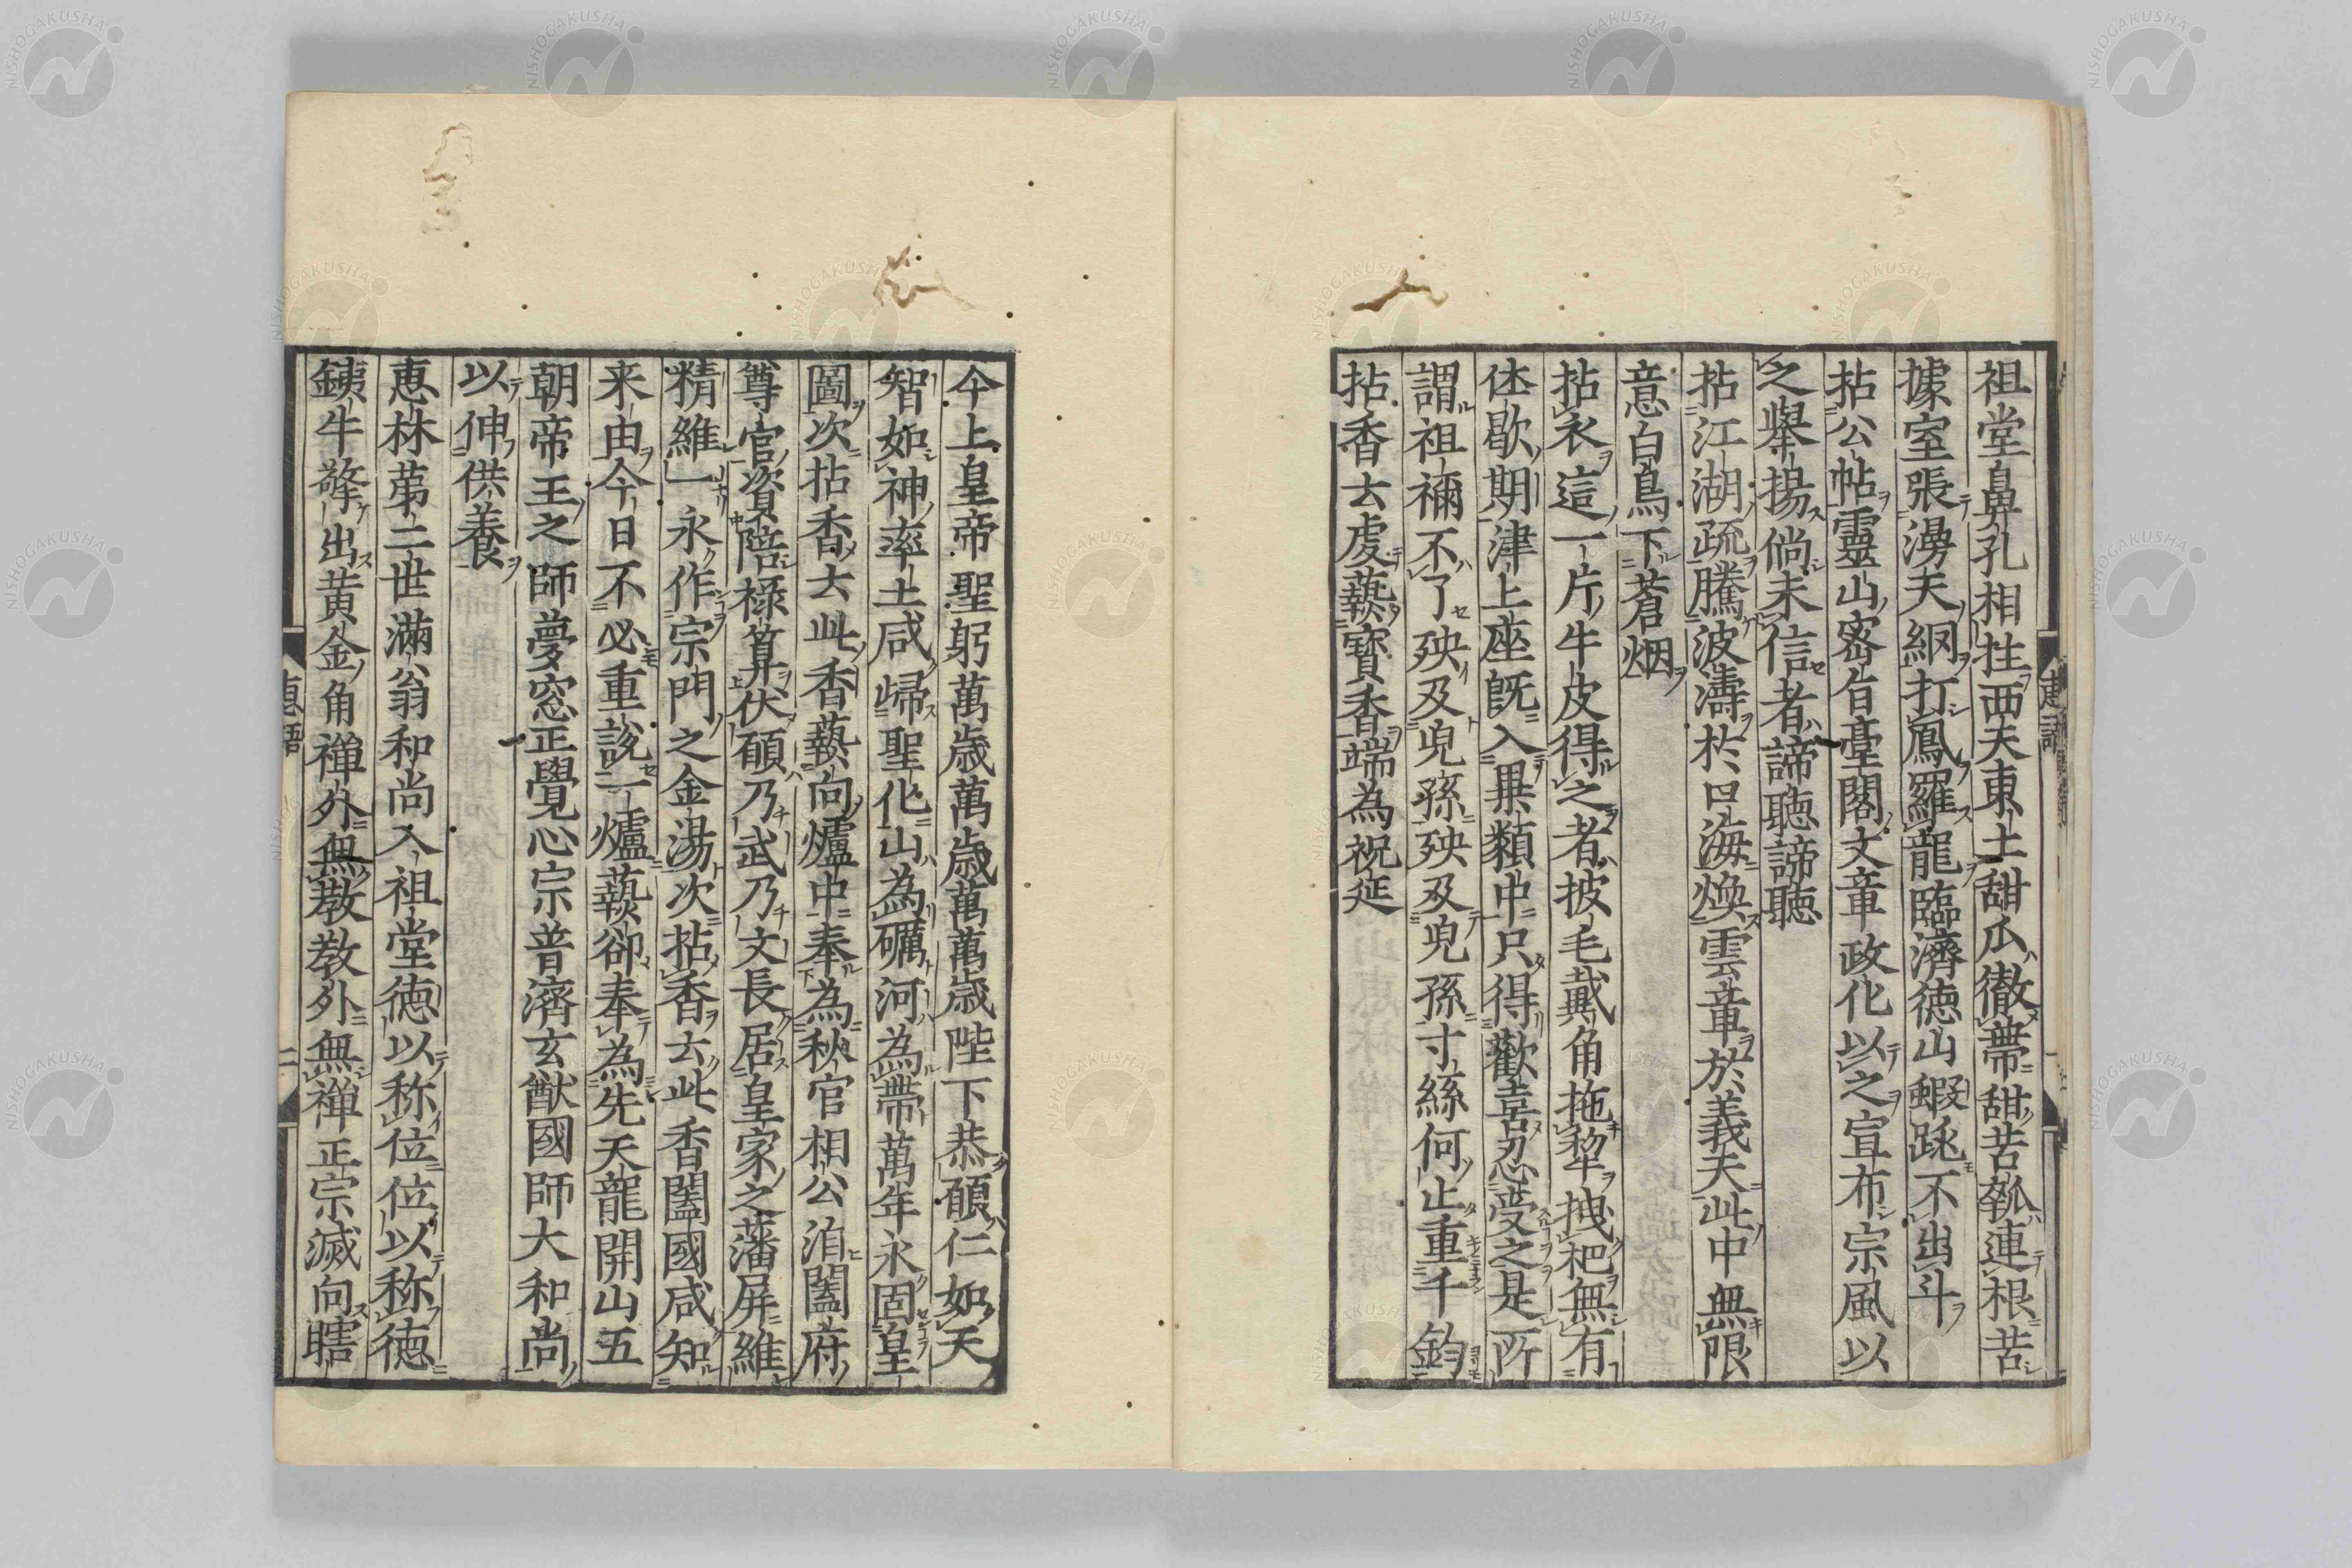 祖堂鼻孔相拄西天東土甜瓜徹蔕甜苦瓠連根苦
據室張漫天網打鳳羅龍臨濟徳山蝦跳不出斗
拈公帖靈山密旨臺閣文章政化以之宣布宗風以
之擧揚倘未信者諦聽諦聽
拈江湖疏騰波濤於口海煥雲章於義天此中無限
意白鳥下蒼烟
拈衣這一片牛皮得之者披毛戴角拖犂拽杷無有
休歇期津上座旣入異類中只得歡喜忍受之是所
謂祖禰不了殃及兒孫殃及兒孫寸絲何止重千鈞
拈香云虔爇寳香端為祝延
今上皇帝聖躬萬歳萬歳萬萬歳陛下恭願仁如天
智如神率土咸歸聖化山為礪河為帶萬年永固皇
圖次拈香云此香爇向爐中奉為秋官相公洎闔府
尊官資陪禄算伏願乃武乃文長居皇家之藩屏維
精維一永作宗門之金湯次拈香云此香闔國咸知
来由今日不必重說一爐爇卻奉為先天龍開山五
朝帝王之師夢窓正覺心宗普濟玄猷國師大和尚
以伸供養
恵林苐二世滿翁和尚入祖堂徳以称位位以称徳
鐵牛擎出黄金角禅外無教教外無禅正宗滅向瞎
恵語
二